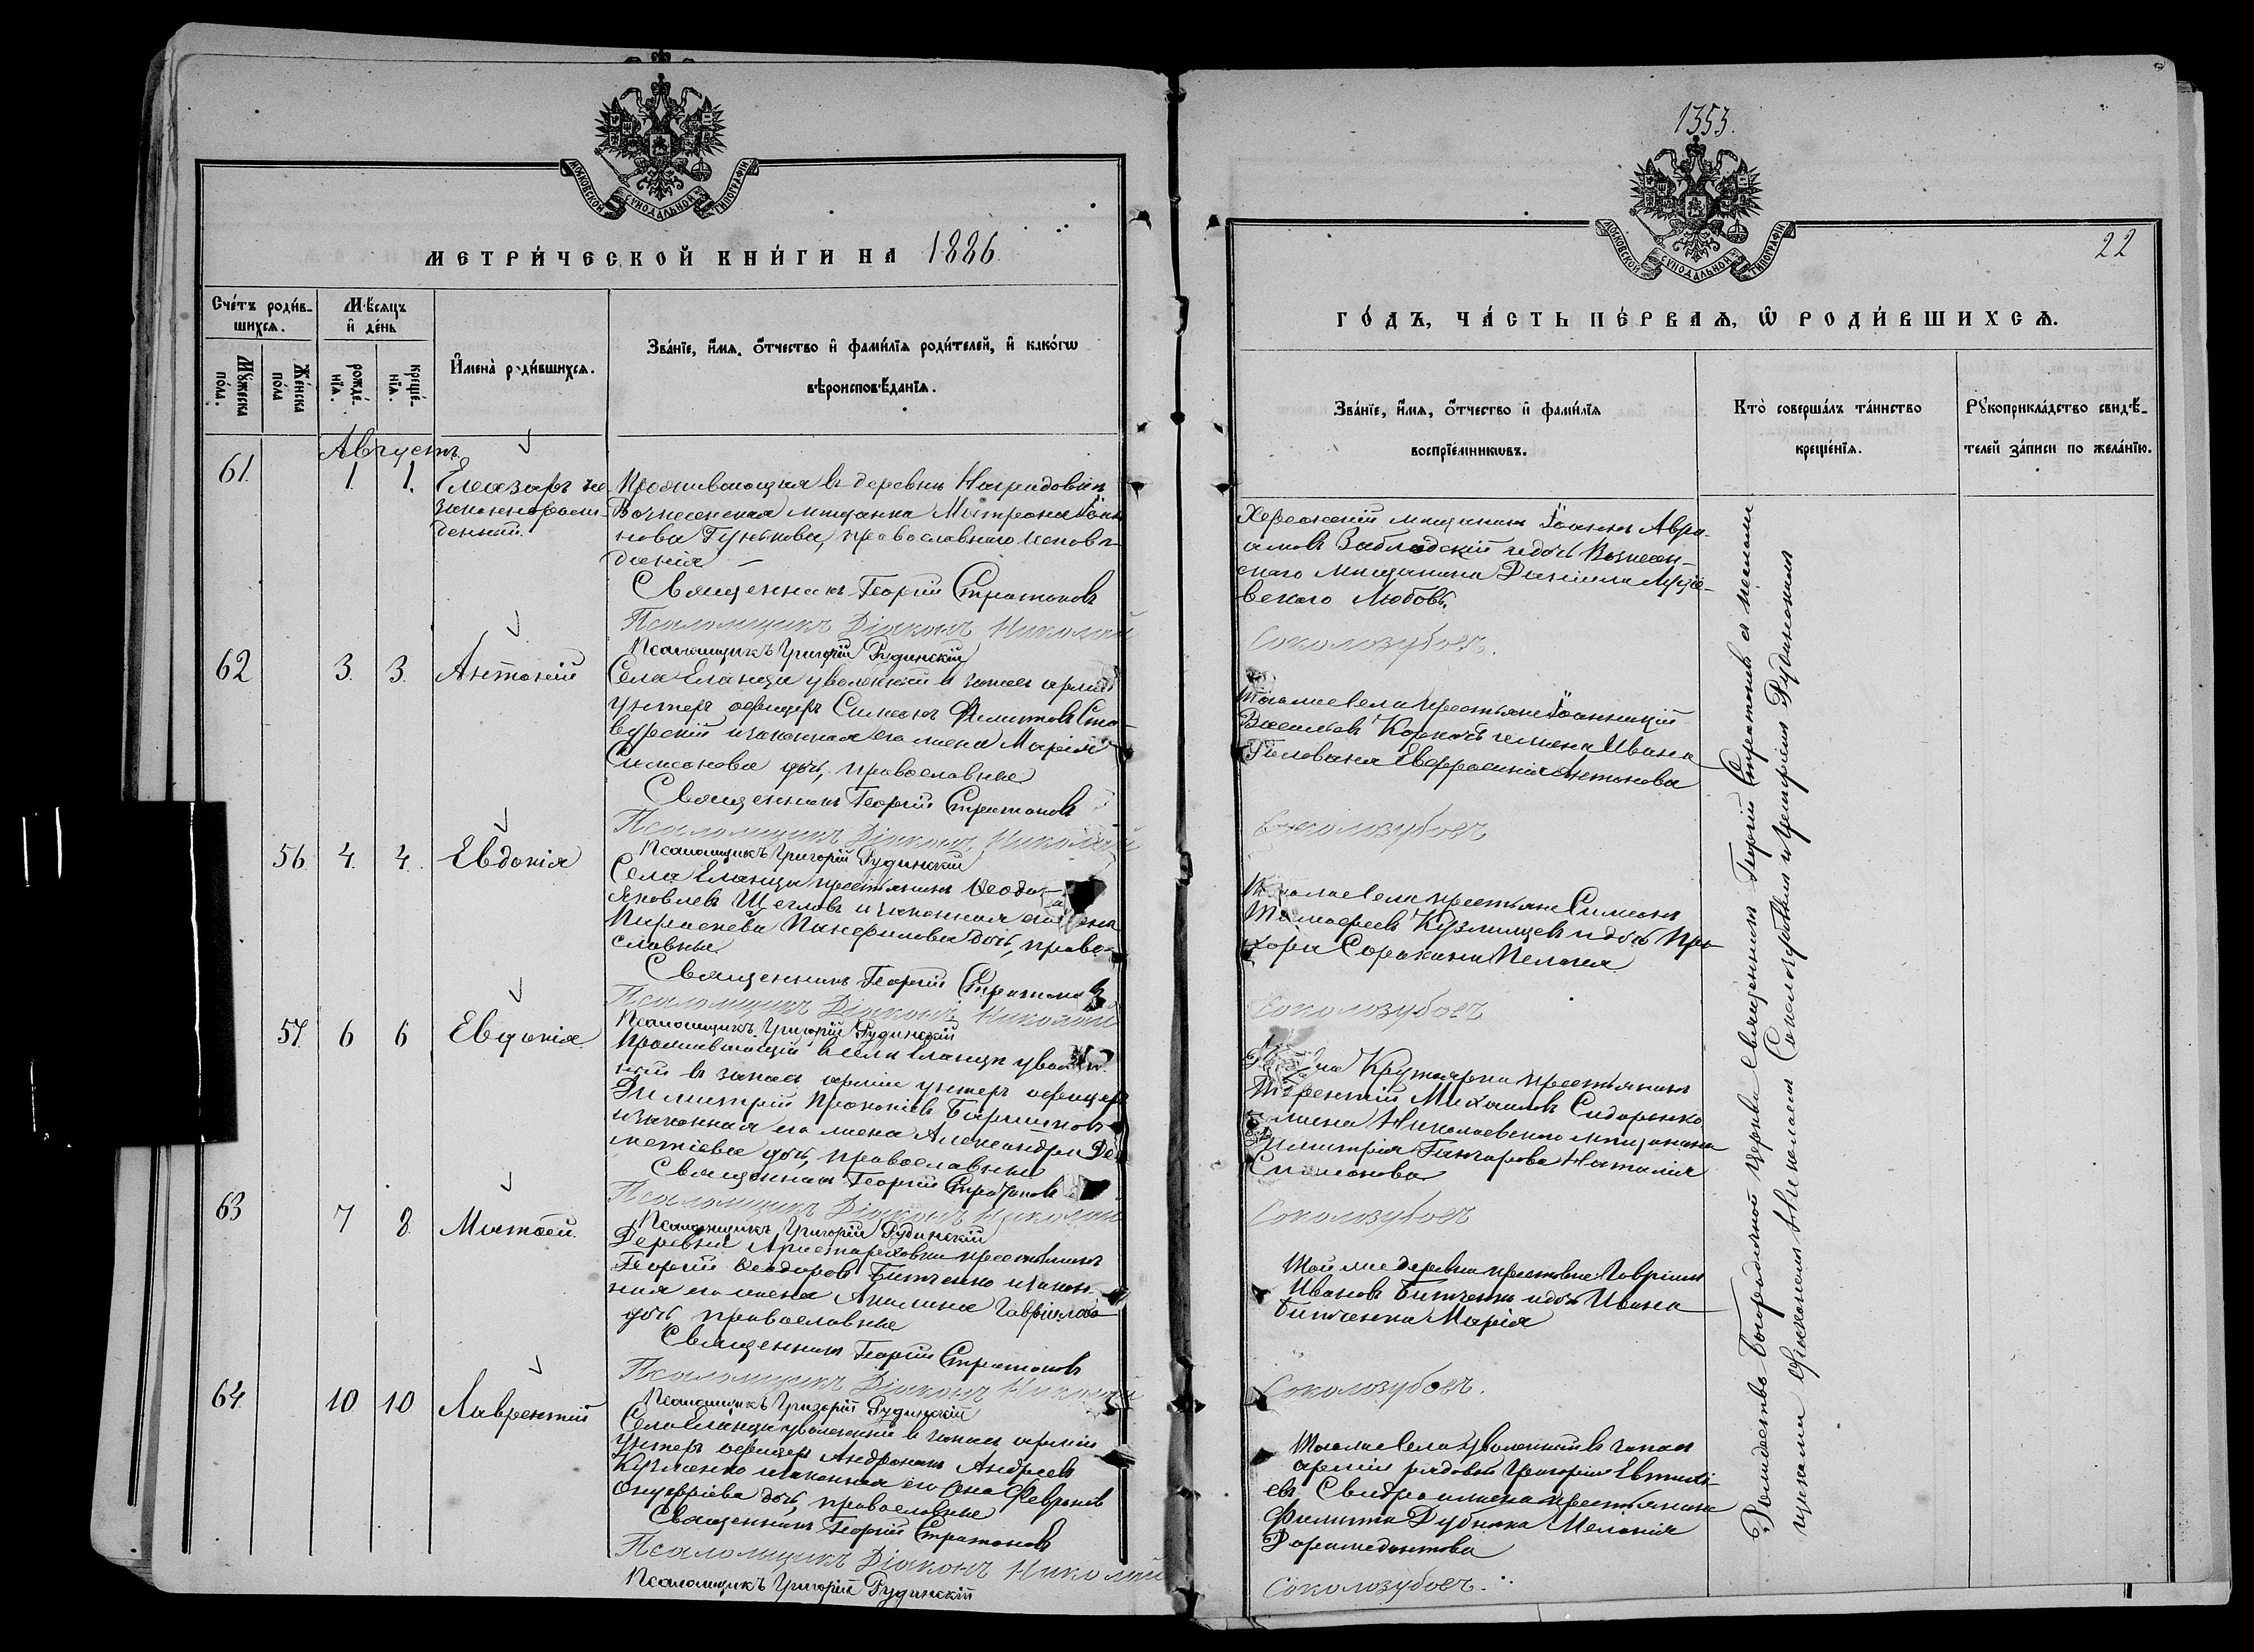 МОСКОВСКОЙ СѴНОДАЛЬНОЙ ТИПОГРАФІИ
МЕТРИ́ЧЕСКОЙ КНИ́ГИ НА 1886.
Сче́тъ роди́в-
шихся.
Мѣ́сяцъ
и҆ де́нь
Мꙋ́жеска
по́ла.
Же́нска
по́ла
рожде́-
нїѧ.
креще́-
нїѧ.
И҆мена̀ роди́вшихсѧ.
Зва́нїе, и҆́мѧ, ѻ҆́тчество и҆ фами́лїѧ роди́телей, и҆ како́гѡ
вѣроисповѣ́данїѧ.
Августъ
61. 1. 1. Елеазаръ не
законнорож-
денный.
Проживающая въ деревнѣ
Вознесенская мѣщанка Матрона Іоан
нова православнаго исповѣ-
данія
Священникъ Георгій Стратоновъ
Псаломщикъ Діаконъ Николай
Псаломщикъ Григорій Рудинскій
62 3. 3. Антоній
Села Еланца уволенный в запас арміи
унтеръ офицеръ Симеонъ Филиповъ Ста-
и законная его жена Марія
Симеонова дочь, православные
Священникъ Георгій Стратоновъ
Псаломщикъ Діаконъ Николай
Псаломщикъ Григорій Рудинскій
56 4. 4. Евдокія
Села Еланца крестьянинъ Ѳеодо
Яковлевъ Щегловъ и законная его жена
Панфилова дочь, право-
славные
Священникъ Георгій Стратоновъ
Псаломщикъ Діаконъ Николай
Псаломщикъ Григорій Рудинскій
57. 6 6 Евдокія
Проживающій в селѣ Еланцѣ уволен
ный въ запасъ арміи унтеръ офицеръ
Димитрій Прокопіевъ
и законная его жена Александра Де
метіева дочь, православные
Священникъ Георгій Стратоновъ
Псаломщикъ Діаконъ Николай
Псаломщикъ Григорій Рудинскій
63 7 8 Матѳей.
Деревни Аристарховки крестьянинъ
Георгій Ѳеодоровъ Битченко и закон-
ная его жена Акилина Гавріилова
дочь православные
Священникъ Георгій Стратоновъ
Псаломщикъ Діаконъ Николай
Псаломщикъ Григорій Рудинскій
64 10 10 Лаврентій
Села Еланца уволенный в запасъ арміи
унтеръ офицеръ Андроникъ Андреевъ
Кузменко и законная его жена Февронія
Онуфріева дочь, православные
Священникъ Георгій Стратоновъ
Псаломщикъ Діаконъ Николай
Псаломщикъ Григорій Рудинскій
1353.
МОСКОВСКОЙ СѴНОДАЛЬНОЙ ТИПОГРАФІИ
22
ГО́ДЪ, ЧА́СТЬ ПЕ́РВАѦ, Ѡ҆ РОДИ́ВШИХСѦ.
Зва́нїе, и҆́мѧ, ѻ҆́тчество и҆ фами́лїѧ
воспрїе́мникѡвъ.
Кто̀ соверша́лъ та́инство
креще́нїѧ.
Рꙋкоприкла́дство свидѣ́-
телей за́писи по жела́нїю.
Херсонскій мѣщанинъ Іоаннъ Авра-
амовъ и дочь Вознесен-
скаго мѣщанина Даніила
вскаго Любовь.
Соколозубовъ.
Того же села крестьяне
Васильевъ и жена Ивана
Голована Евфросинія Антонова
Соколозубовъ
Того же села крестьяне Симеонъ
Тимофеевъ Кузмищевъ и дочь Про-
хора Сорокина Пелагея
Соколозубовъ
крестьянинъ
Терентій Михаиловъ Сидоренко
и жена Николаевскаго мѣщанина
Димитрія Ганчарова Наталія
Симеонова
Соколозубовъ
Той же деревни крестьяне Гавріилъ
Ивановъ Битченко и дочь Ивана
Битченка Марія
Соколозубовъ.
Того же села уволенный въ запасъ
арміи рядовой Григорій Евтихі-
евъ и жена крестьянина
Филиппа Дубняка Меланія
Соколозубовъ.
Рождество Богородичной церкви Священникъ Георгій Стратоновъ съ псаломщ
щиками Діакономъ Николаемъ Соколозубовымъ и Григоріемъ Рудинскимъ